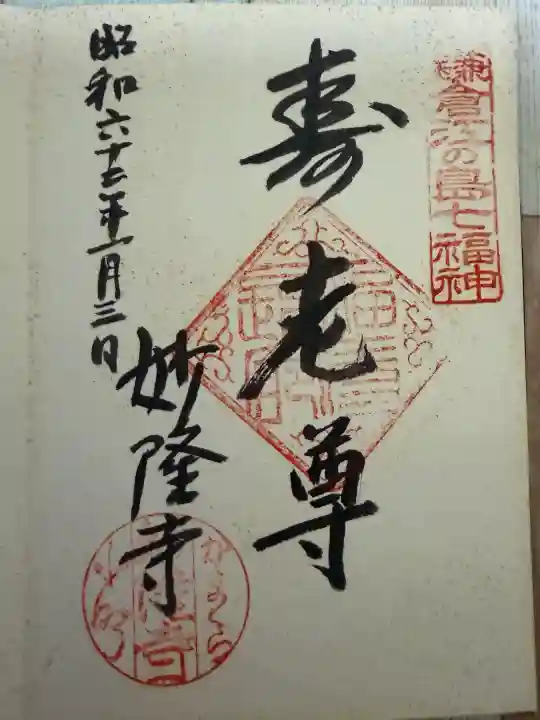 鎌倉江の島七福神
寿老尊
昭和六十二年一月三日
妙隆寺
かまくら
小町